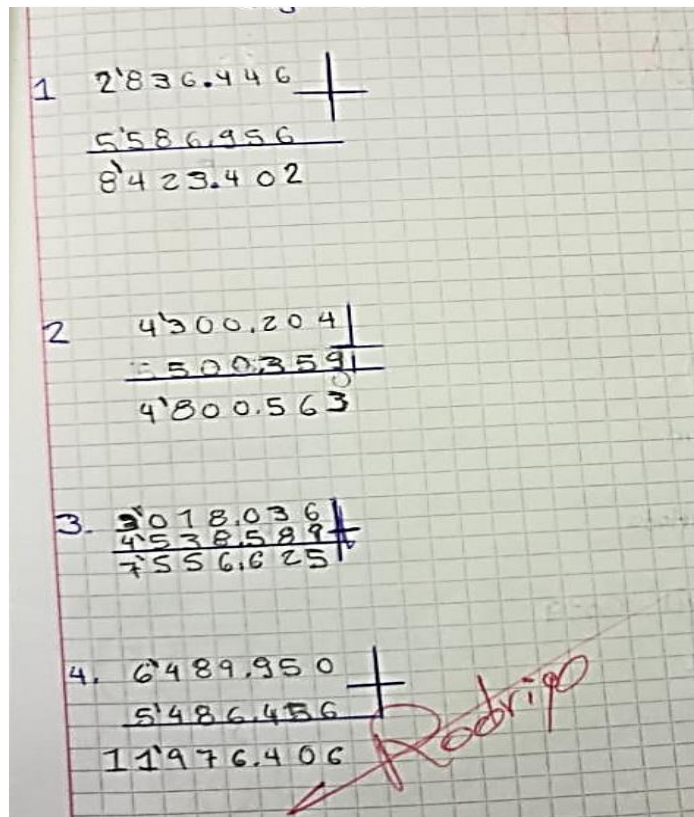 1 2'836.446 +
5'586.956
8'423.402
2 4'300.204 +
500.359
4'800.563
3. 3'018.036 +
4'538.589
7'556.625
4. 6'489.950 +
5'486.456
11'976.406
Rodrigo